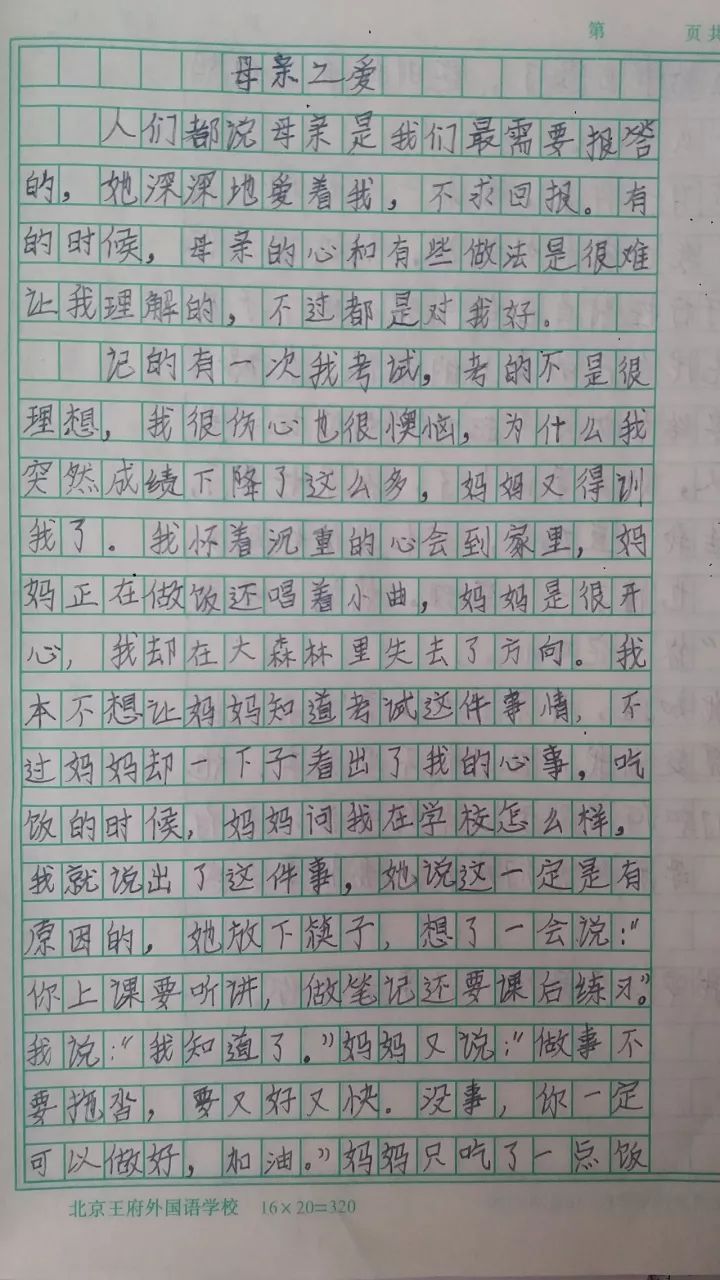 第 页 共
母亲之爱
人们都说母亲是我们最需要报答
的，她深深地爱着我，不求回报。有
的时候，母亲的心和有些做法是很难
让我理解的，不过都是对我好。
记的有一次我考试，考的不是很
理想，我很伤心也很懊恼，为什么我
突然成绩下降了这么多，妈妈又得训
我了。我怀着沉重的心会到家里，妈
妈正在做饭还唱着小曲，妈妈是很开
心，我却在大森林里失去了方向。我
本不想让妈妈知道考试这件事情，不
过妈妈却一下子看出了我的心事，吃
饭的时候，妈妈问我在学校怎么样，
我就说出了这件事，她说这一定是有
原因的，她放下筷子，想了一会说：“
你上课要听讲，做笔记还要课后练习。”
我说：“我知道了。”妈妈又说：“做事不
要拖沓，要又好又快。没事，你一定
可以做好，加油。”妈妈只吃了一点饭
北京王府外国语学校 16×20=320